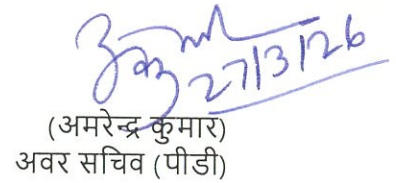 27/3/26
(अमरेन्द्र कुमार)
अवर सचिव (पीडी)